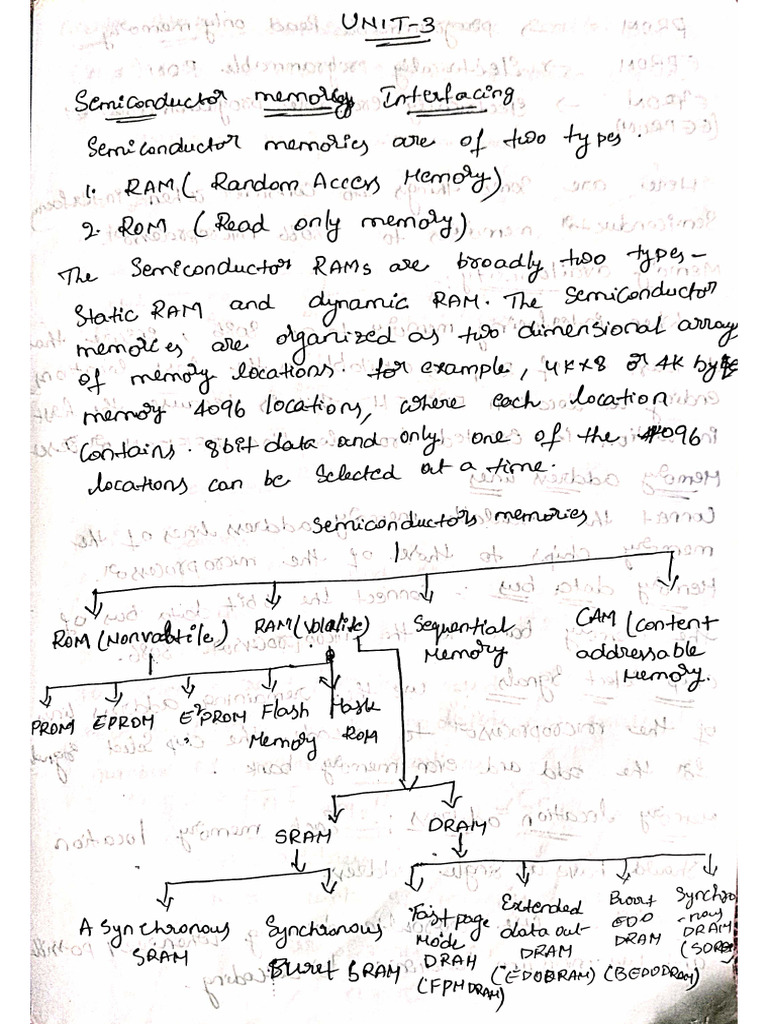 UNIT-3
Semiconductor memory Interfacing
Semiconductor memories are of two types.
1. RAM ( Random Access Memory)
2. ROM ( Read only memory)
The Semiconductor RAMs are broadly two types-
Static RAM and dynamic RAM. The Semiconductor
memories are organized as two dimensional array
of memory locations. for example, 4K×8 or 4K byte
memory 4096 locations, where each location
contains. 8bit data and only one of the 4096
locations can be Selected at a time.
Semiconductors memories
ROM (Nonvoltile) RAM (Volatile) Sequential CAM (Content
Memory addressable
Memory.
PROM EPROM E²PROM Flash Mask
Memory ROM
SRAM DRAM
ASynchronous Synchronous Fast page Extended Burst Synchro
SRAM Burst SRAM Mode data out EDO -nous
DRAM DRAM DRAM DRAM
(FPM DRAM) (EDOBRAM) (BEDODRAM)